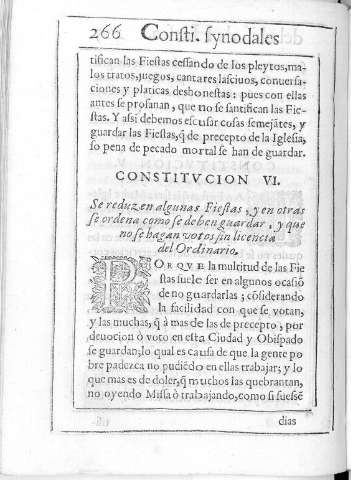 266 Consti. synodales
tifican las Fiestas cessando de los pleytos, ma-
los tratos, juegos, cantares lasciuos, conuersa-
ciones y platicas deshonestas: pues con ellas
antes se profanan, que no se santifican las Fie-
stas. Y assi debemos escusar cosas semejãtes, y
guardar las Fiestas, q̃ de precepto de la Iglesia,
so pena de pecado mortal se han de guardar.
CONSTITVCION VI.
Se reduzen algunas Fiestas, y en otras
se ordena como se deben guardar, y que
no se hagan votos sin licencia
del Ordinario.
PORQVE la multitud de las Fie
stas suele ser en algunos ocasiõ
de no guardarlas; cõsiderando
la facilidad con que se votan,
y las muchas, q̃ à mas de las de precepto, por
deuocion ò voto en esta Ciudad y Obispado
se guardan; lo qual es causa de que la gente po
bre padezca no pudiẽdo en ellas trabajar; y lo
que mas es de doler, q̃ muchos las quebrantan,
no oyendo Missa ò trabajando, como si fuessẽ
dias